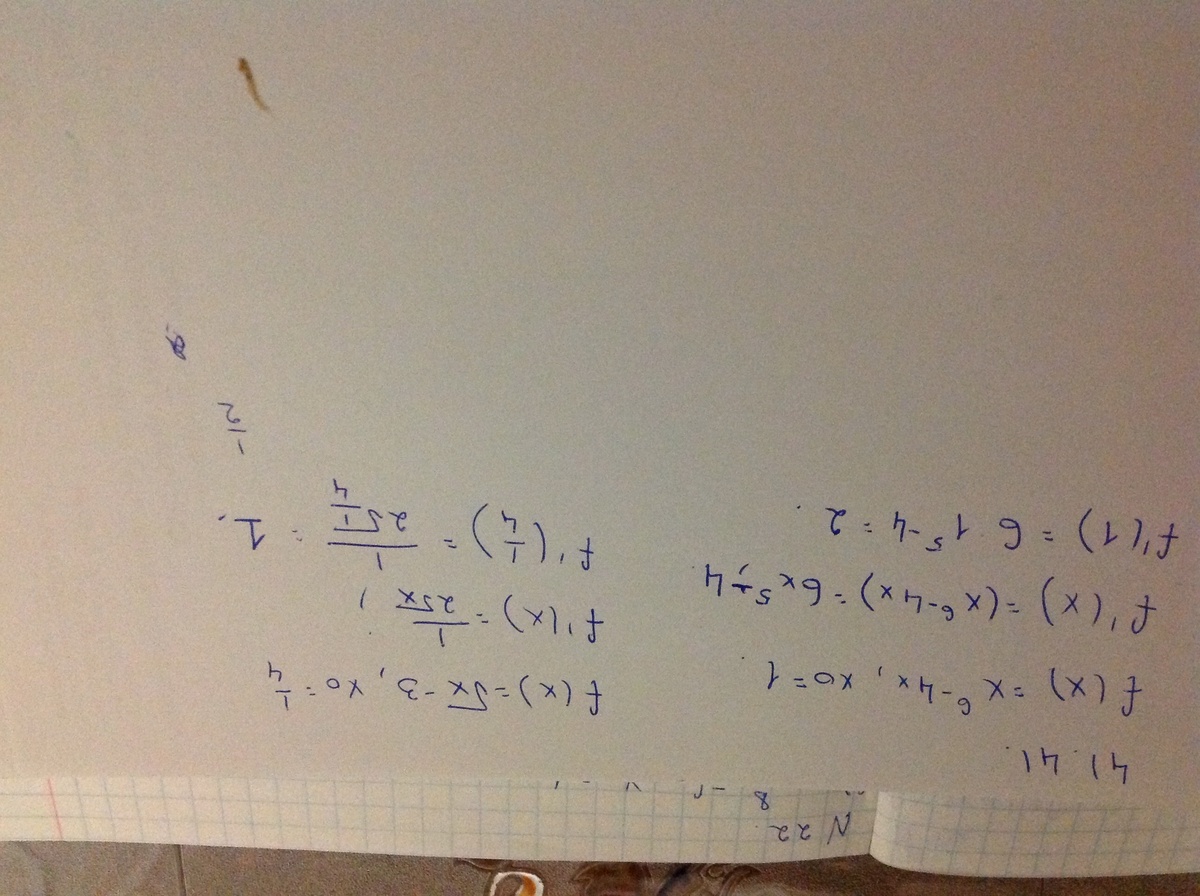 N 22
8
41.41.
f(x) = x⁶-4x, x0=1.
f'(x) = (x⁶-4x) = 6x⁵-4
f'(1) = 6·1⁵-4 = 2.
f(x) = √x -3, x0 = 1/4
f'(x) = 1/2√x
f'(1/4) = 1/2√1/4 = 1.
1/2